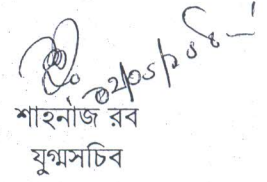 শাহনাজ রব
যুগ্মসচিব